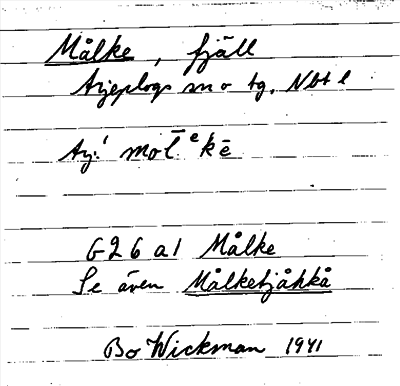 Målke, fjäll
Arjeplogs sn o tg. Nbt l
Arj.! mol̄ᵉkē
G26 a1 Målke
Se även Målketjåkkå
Bo Wickman 1941